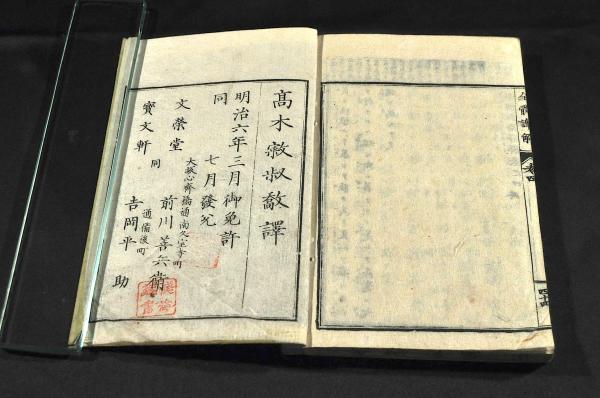 卷四
高木叔譯
明治六年三月御免許
同 七月發兌
文榮堂 大坂心齋橋通南久宝寺町 前川善兵衛
寶文軒 同 通備後町 吉岡平助